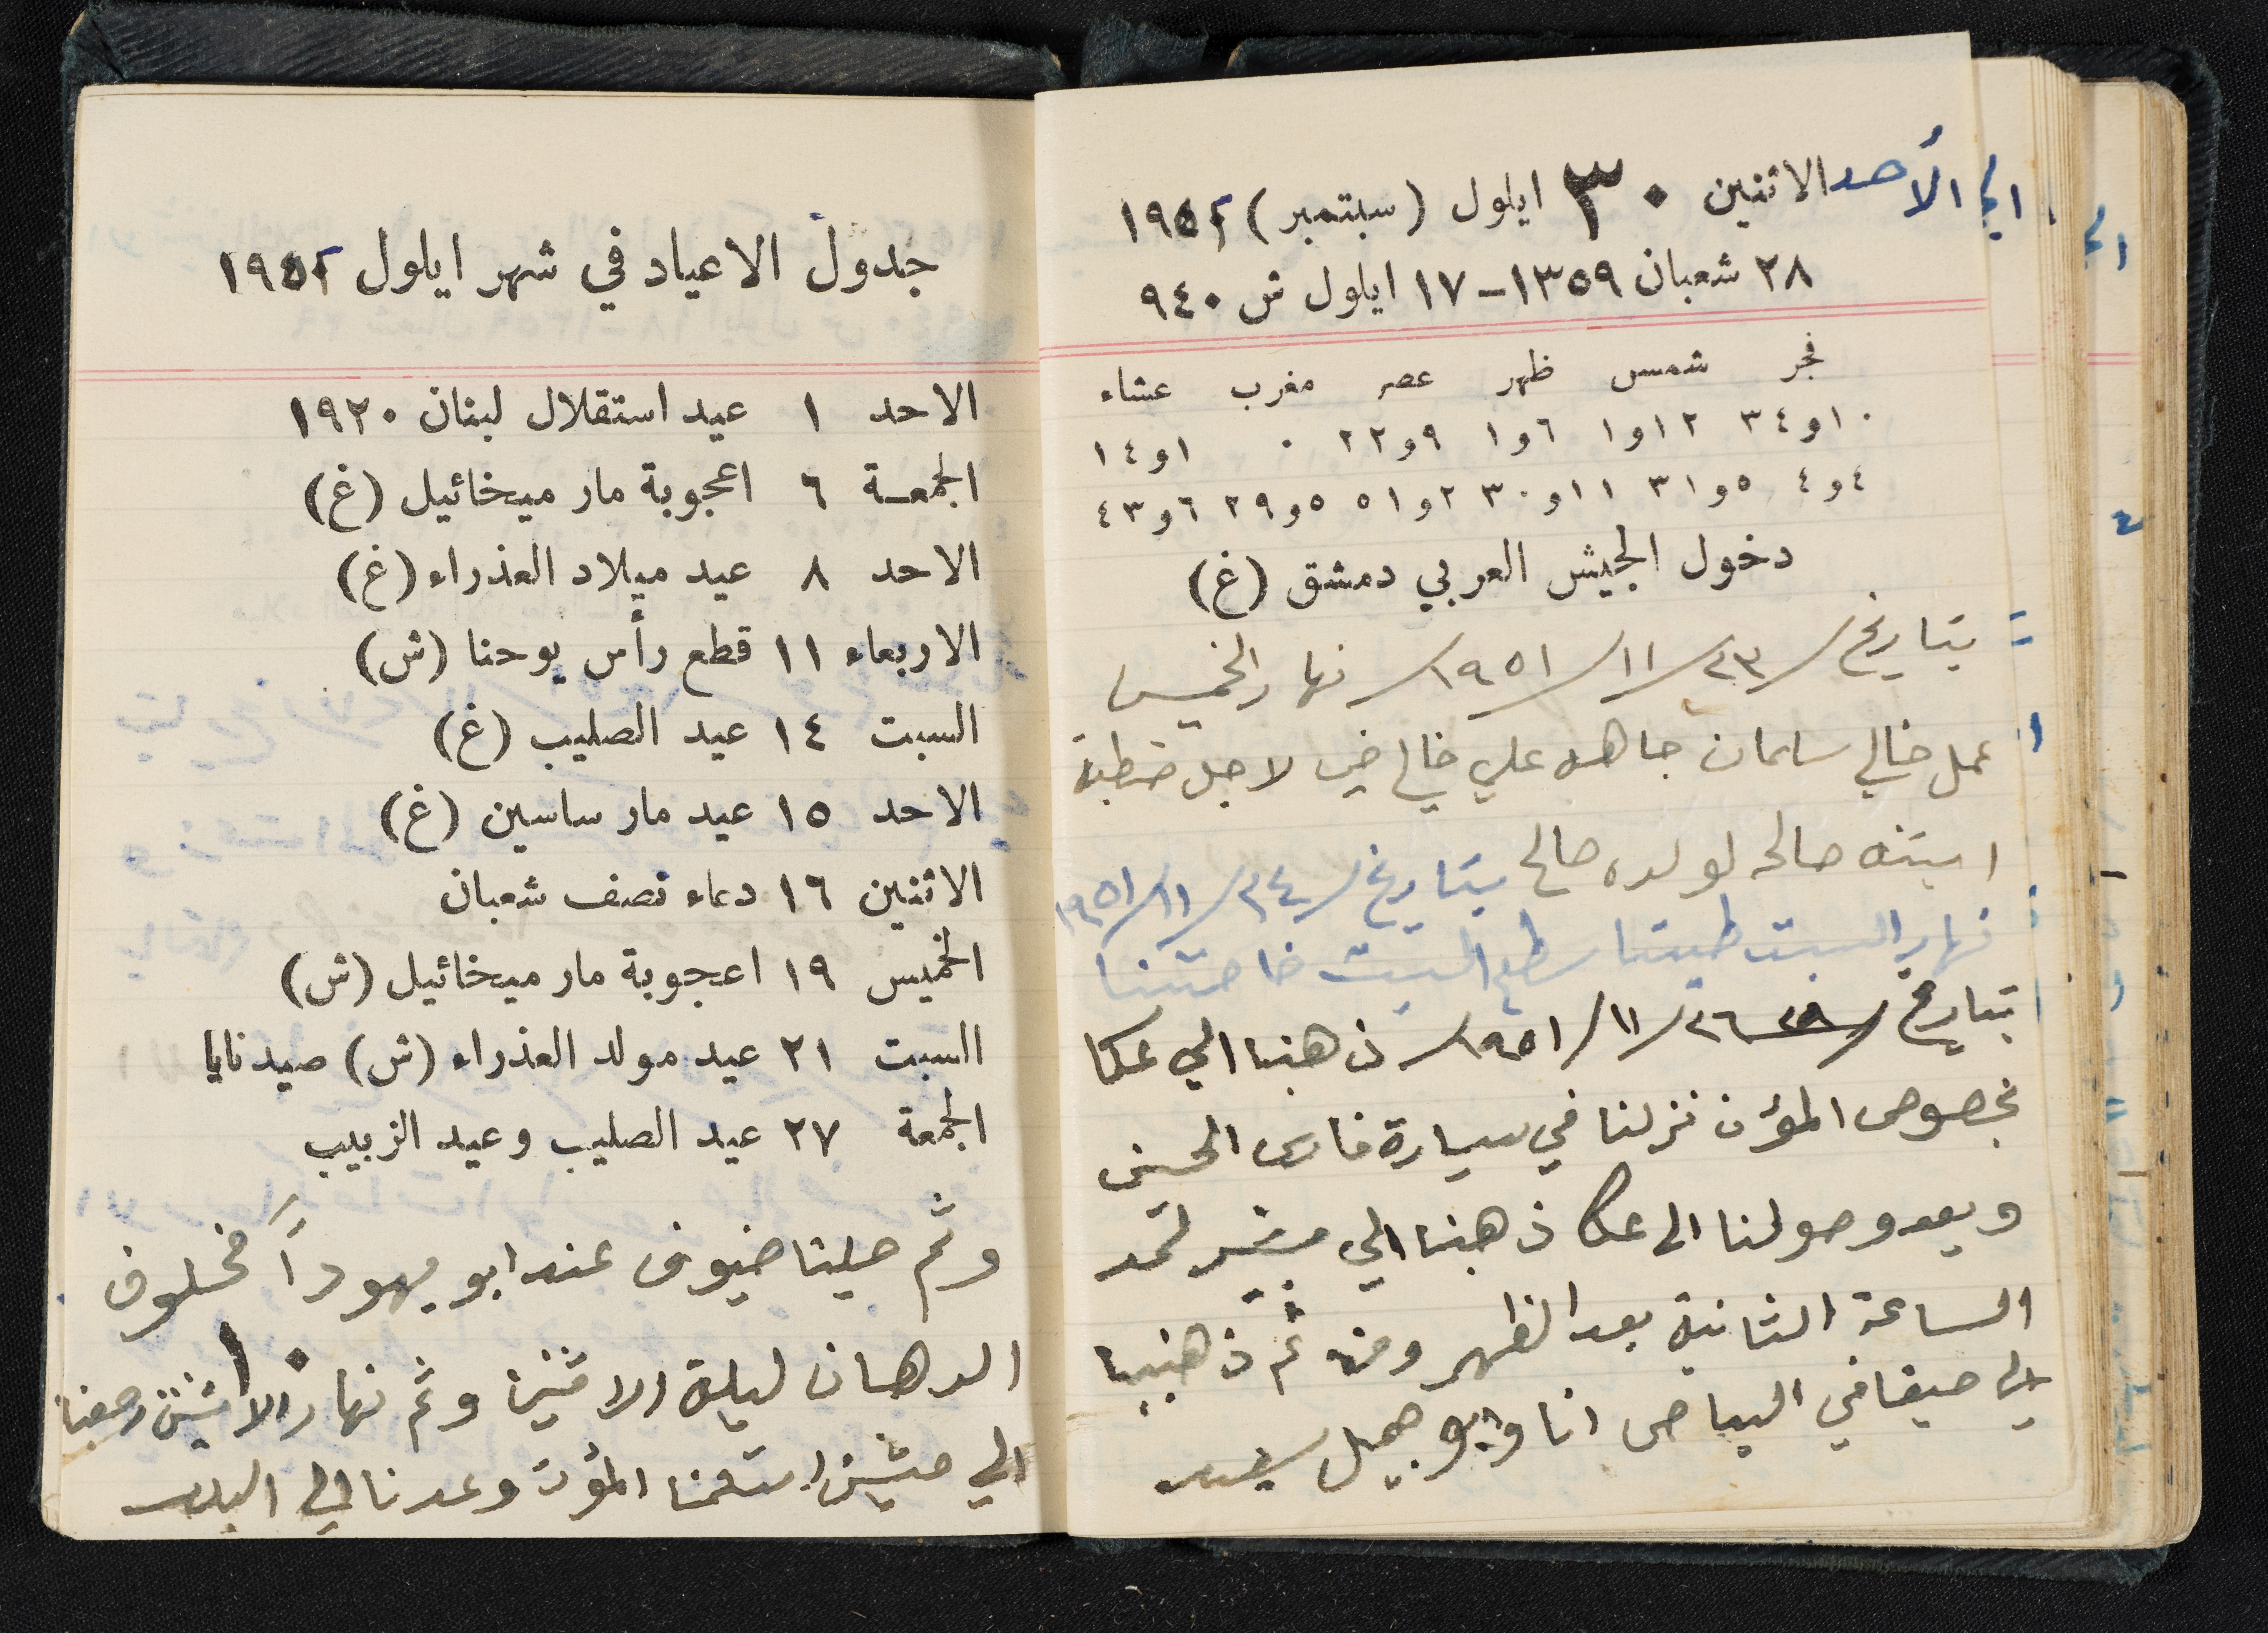 الأحد الاثنين ٣٠ ايلول (سبتمبر) ١٩٥٢
٢٨ شعبان ١٣٥٩ – ١٧ ايلول ش ٩٤٠
فجر شمس ظهر عصر مغرب عشاء
١٠و٣٤ ١٢و١ ٦و١ ٩و٢٢ ٠ ١و١٤
٤و٤ ٥و٣١ ١١و٣٠ ٢و٥١ ٥و٢٩ ٦و٤٣
دخول الجيش العربي دمشق (غ)
بتاريخ /٢٣/١١/١٩٥١/ نهار الخميس
عمل خالي سلمان جاهه علي خالي لاجل خطبة
ابنته صالحه لولده صالح بتاريخ /٢٤/١١/١٩٥١
نهار السبت طينا سطح البيت خاصتنا
بتاريخ /٢٦/١١/١٩٥١/ ذهبنا الي عكا
بخصوص المؤن نزلنا في سيارة فارس الحسين
وبعد وصولنا الى عكا ذهبنا الي
الساعة الثانية بعد الظهر ومن ثم ذهبنا
الى حيفا في الباص انا وابو جميل سعيد
جدول الاعياد في شهر ايلول ١٩٥٢
الاحد ١ عيد استقلال لبنان ١٩٢٠
الجمعة ٦ اعجوبة مار ميخائيل (غ)
الاحد ٨ عيد ميلاد العذراء (غ)
الاربعاء ١١ قطع رأس يوحنا (ش)
السبت ١٤ عيد الصليب (غ)
الاحد ١٥ عيد مار ساسين (غ)
الاثنين ١٦ دعاء نصف شعبان
الخميس ١٩ اعجوبة مار ميخائيل (ش)
السبت ٢١ عيد مولد العذراء (ش) صيدنايا
الجمعة ٢٧ عيد الصليب وعيد الزبيب
وثم حلينا ضيوف عند ابو يهودا مخلوف
الدهان ليلة الاثنين وثم نهار الاثنين رجعنا
الي استلمنا المؤن وعدنا الى البلد